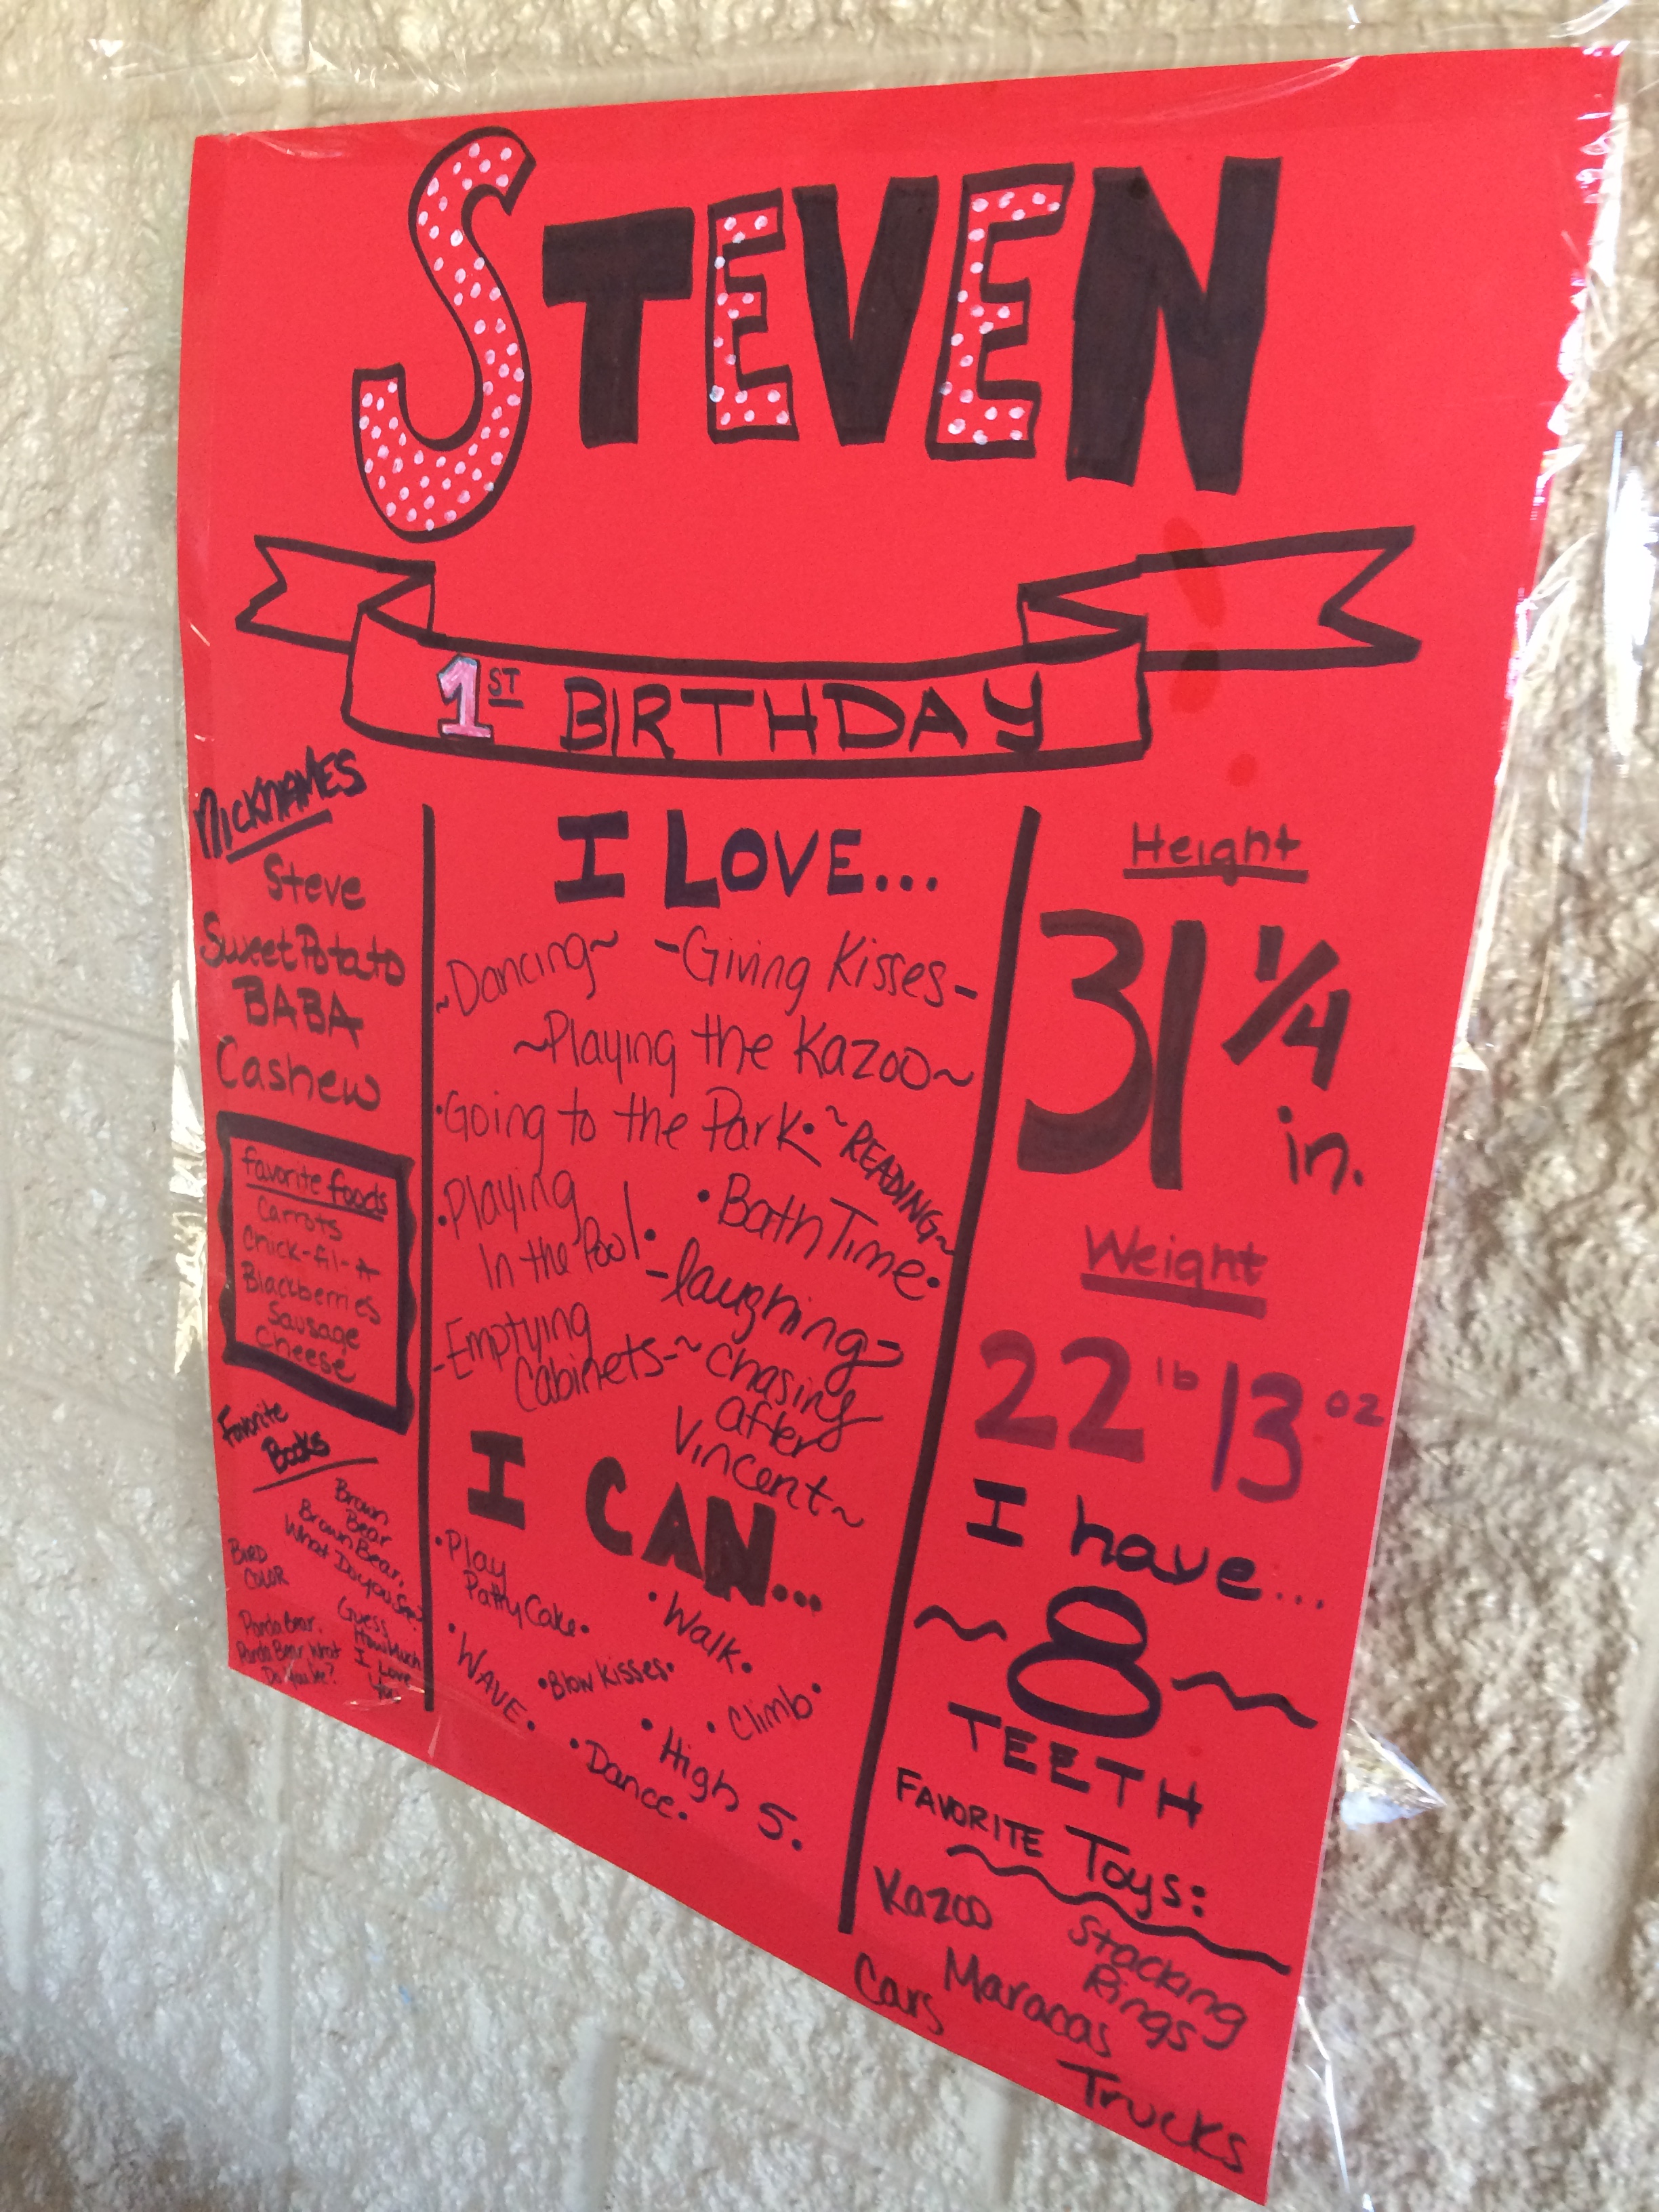 STEVEN
1ST BIRTHDAY
NICKNAMES
Steve
Sweet Potato
BABA
Cashew
favorite foods
Carrots
Chick-fil-A
Blackberries
Sausage
Cheese
Favorite
Books
Brown
Bear
Brown Bear,
What Do you See?
BIRD
COLOR
Guess
How Much
I Love
You
Panda Bear,
Panda Bear What
Do You See?
I LOVE...
~Dancing~
-Giving Kisses-
~Playing the Kazoo~
·Going to the Park·
~READING~
·Playing
In the Pool·
·Bath Time·
-laughing-
-Emptying
Cabinets-
~chasing
after
Vincent~
I CAN...
·Play
Patty Cake·
·Walk·
·WAVE·
·Blow Kisses·
·Climb·
·High 5·
·Dance·
Height
31 1/4
in.
Weight
22 lb 13 oz
I have...
~8~
TEETH
FAVORITE Toys:
Kazoo
Stacking
Rings
Maracas
Cars
Trucks